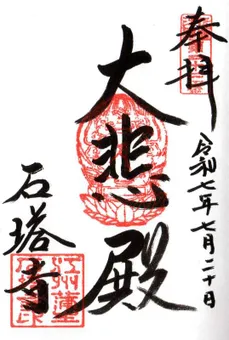 奉拝
令和七年七月二十日
大悲殿
石塔寺